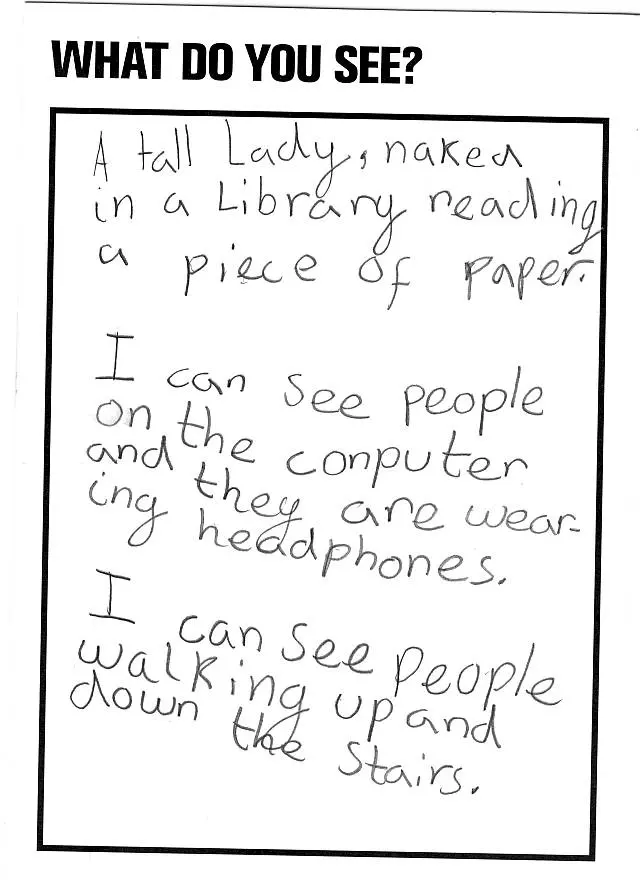 WHAT DO YOU SEE?
A tall Lady, naked
in a Library reading
a piece of paper.
I can see people
on the conputer
and they are wear-
ing headphones.
I can see people
walking up and
down the stairs.